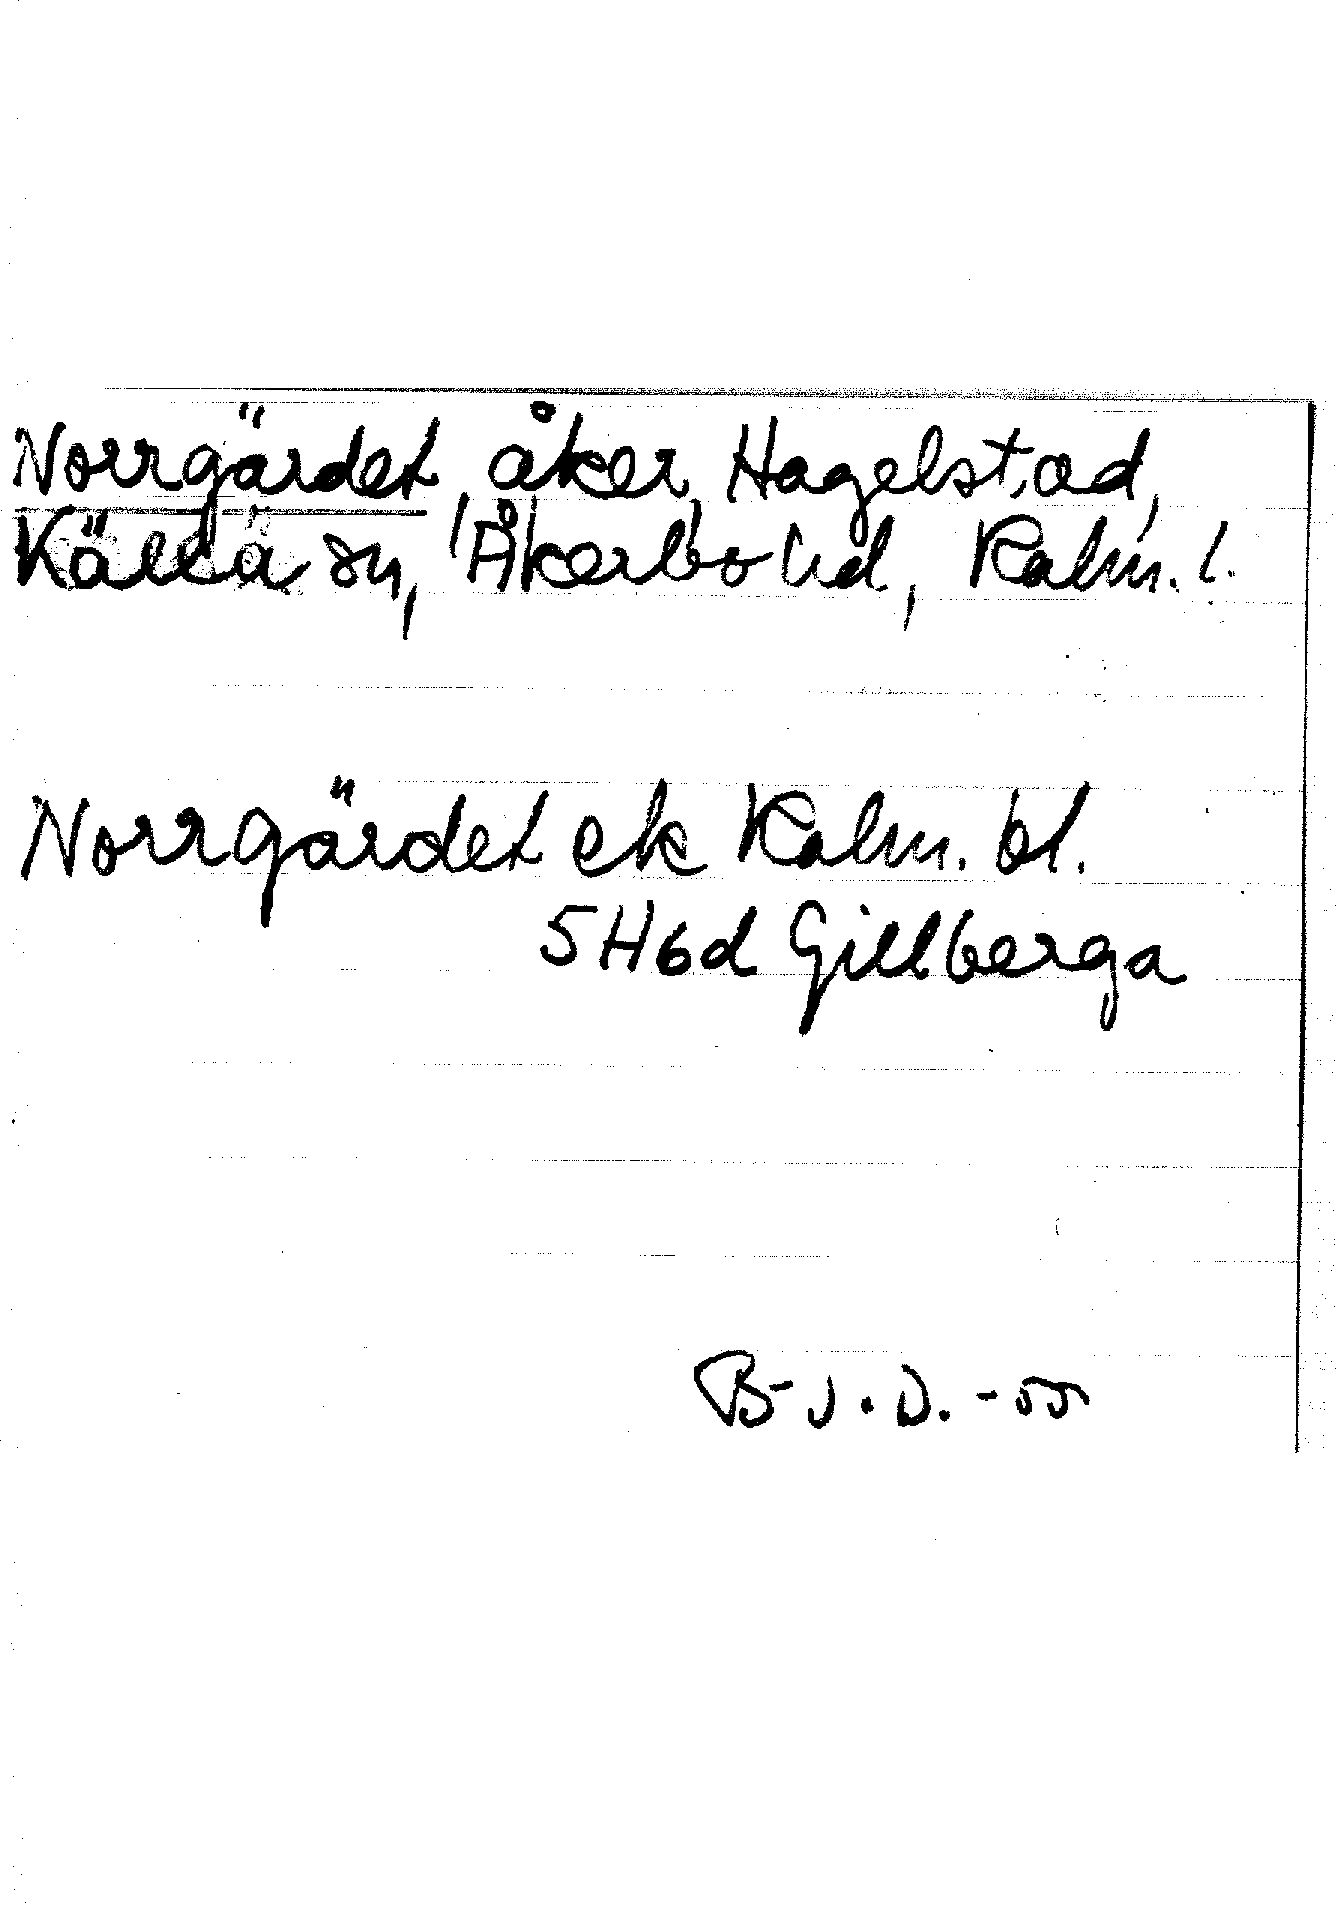 Norrgärdet, åker, Hagelstad,
Källa sn, Åkerbo hd, Kalm. l.
Norrgärdet ek Kalm. bl.
5 H6d Gillberga
B-J.D. -55